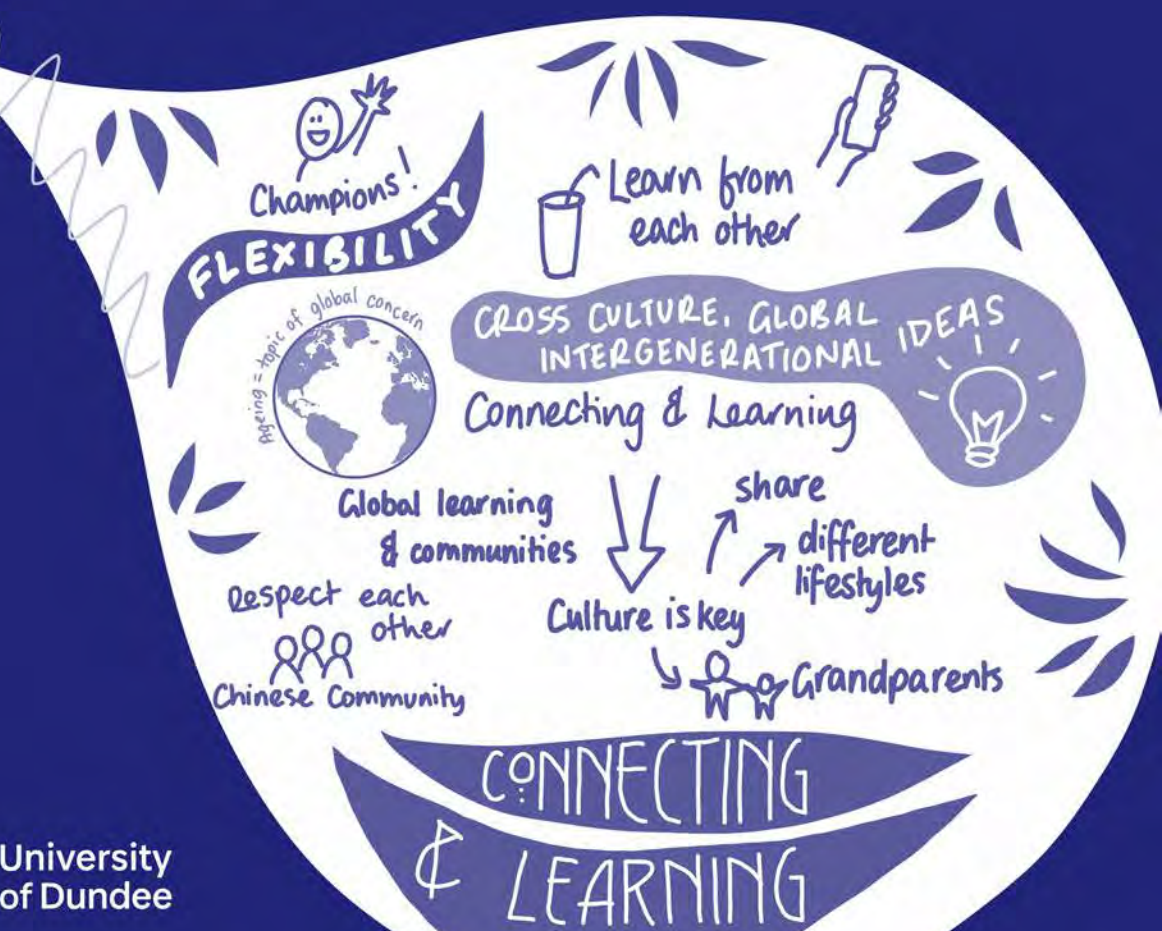 Champions!
FLEXIBILITY
Learn from
each other
Ageing = topic of global concern
CROSS CULTURE, GLOBAL
INTERGENERATIONAL
IDEAS
Connecting & Learning
Global learning
& communities
share
different
lifestyles
Respect each
other
Chinese Community
Culture is key
Grandparents
CONNECTING
& LEARNING
University
of Dundee